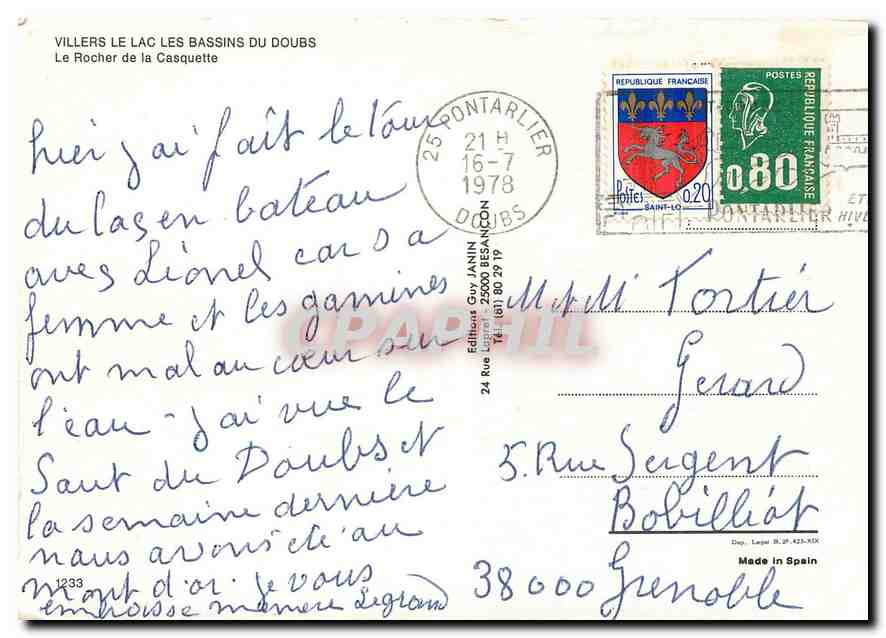 VILLERS LE LAC LES BASSINS DU DOUBS
Le Rocher de la Casquette
hier j'ai fait le tour
du lac en bateau
avec Lionel car sa
femme et les gamines
ont mal au cœur sur
l'eau - j'ai vue le
Saut du Doubs et
la semaine dernière
nous avons été au
mont d'or. je vous
embrasse memere Legrand
1233
25 PONTARLIER
21 H
16-7
1978
DOUBS
REPUBLIQUE FRANÇAISE
Postes
0,20
SAINT-LO
POSTES
REPUBLIQUE FRANÇAISE
0,80
PONTARLIER
ET
HIVE
Editions Guy JANIN
24 Rue Lapret - 25000 BESANÇON
Tél. (81) 80 29 19
CPAPHIL
M et M Tortier
Gerard
5. Rue Sergent
Bobilliot
38000 Grenoble
Dep. Legal B. 29.423-XIX
Made in Spain